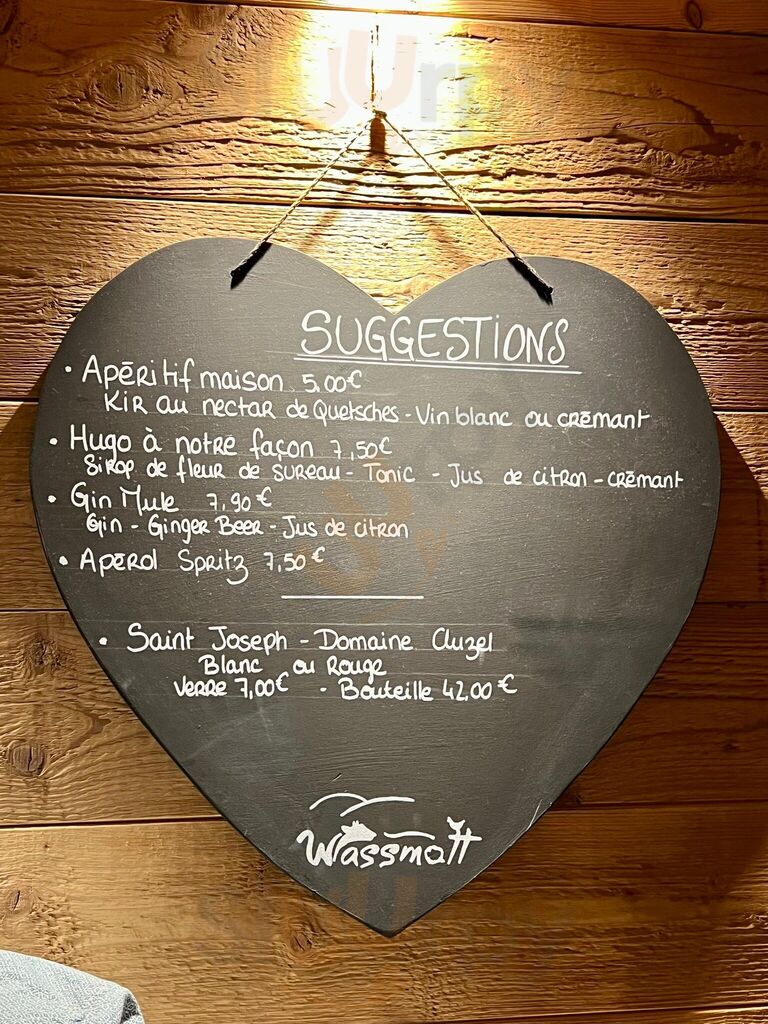 SUGGESTIONS
• Apéritif maison 5,00€
Kir au nectar de Quetsches - Vin blanc ou crémant
• Hugo à notre façon 7,50€
Sirop de fleur de sureau - Tonic - Jus de citron - crémant
• Gin Mule 7,90€
Gin - Ginger Beer - Jus de citron
• Apérol Spritz 7,50€
• Saint Joseph - Domaine Cluzel
Blanc ou Rouge
Verre 7,00€ - Bouteille 42,00€
Wassmatt